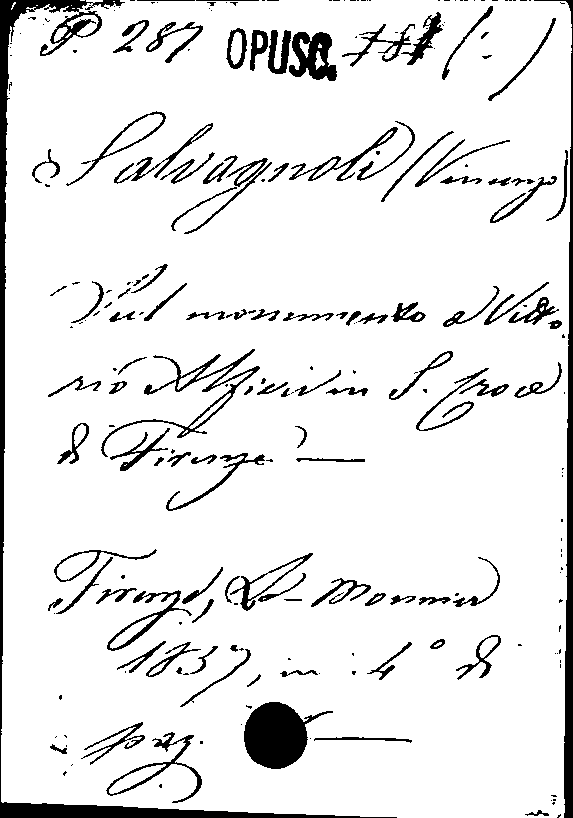 P. 287 OPUSC.
Salvagnoli (Vincenzo)
Sul monumento a Vitto
rio Alfieri in S. Croce
di Firenze —
Firenze, Le-Monnier
1837, in 4° di
pag. —